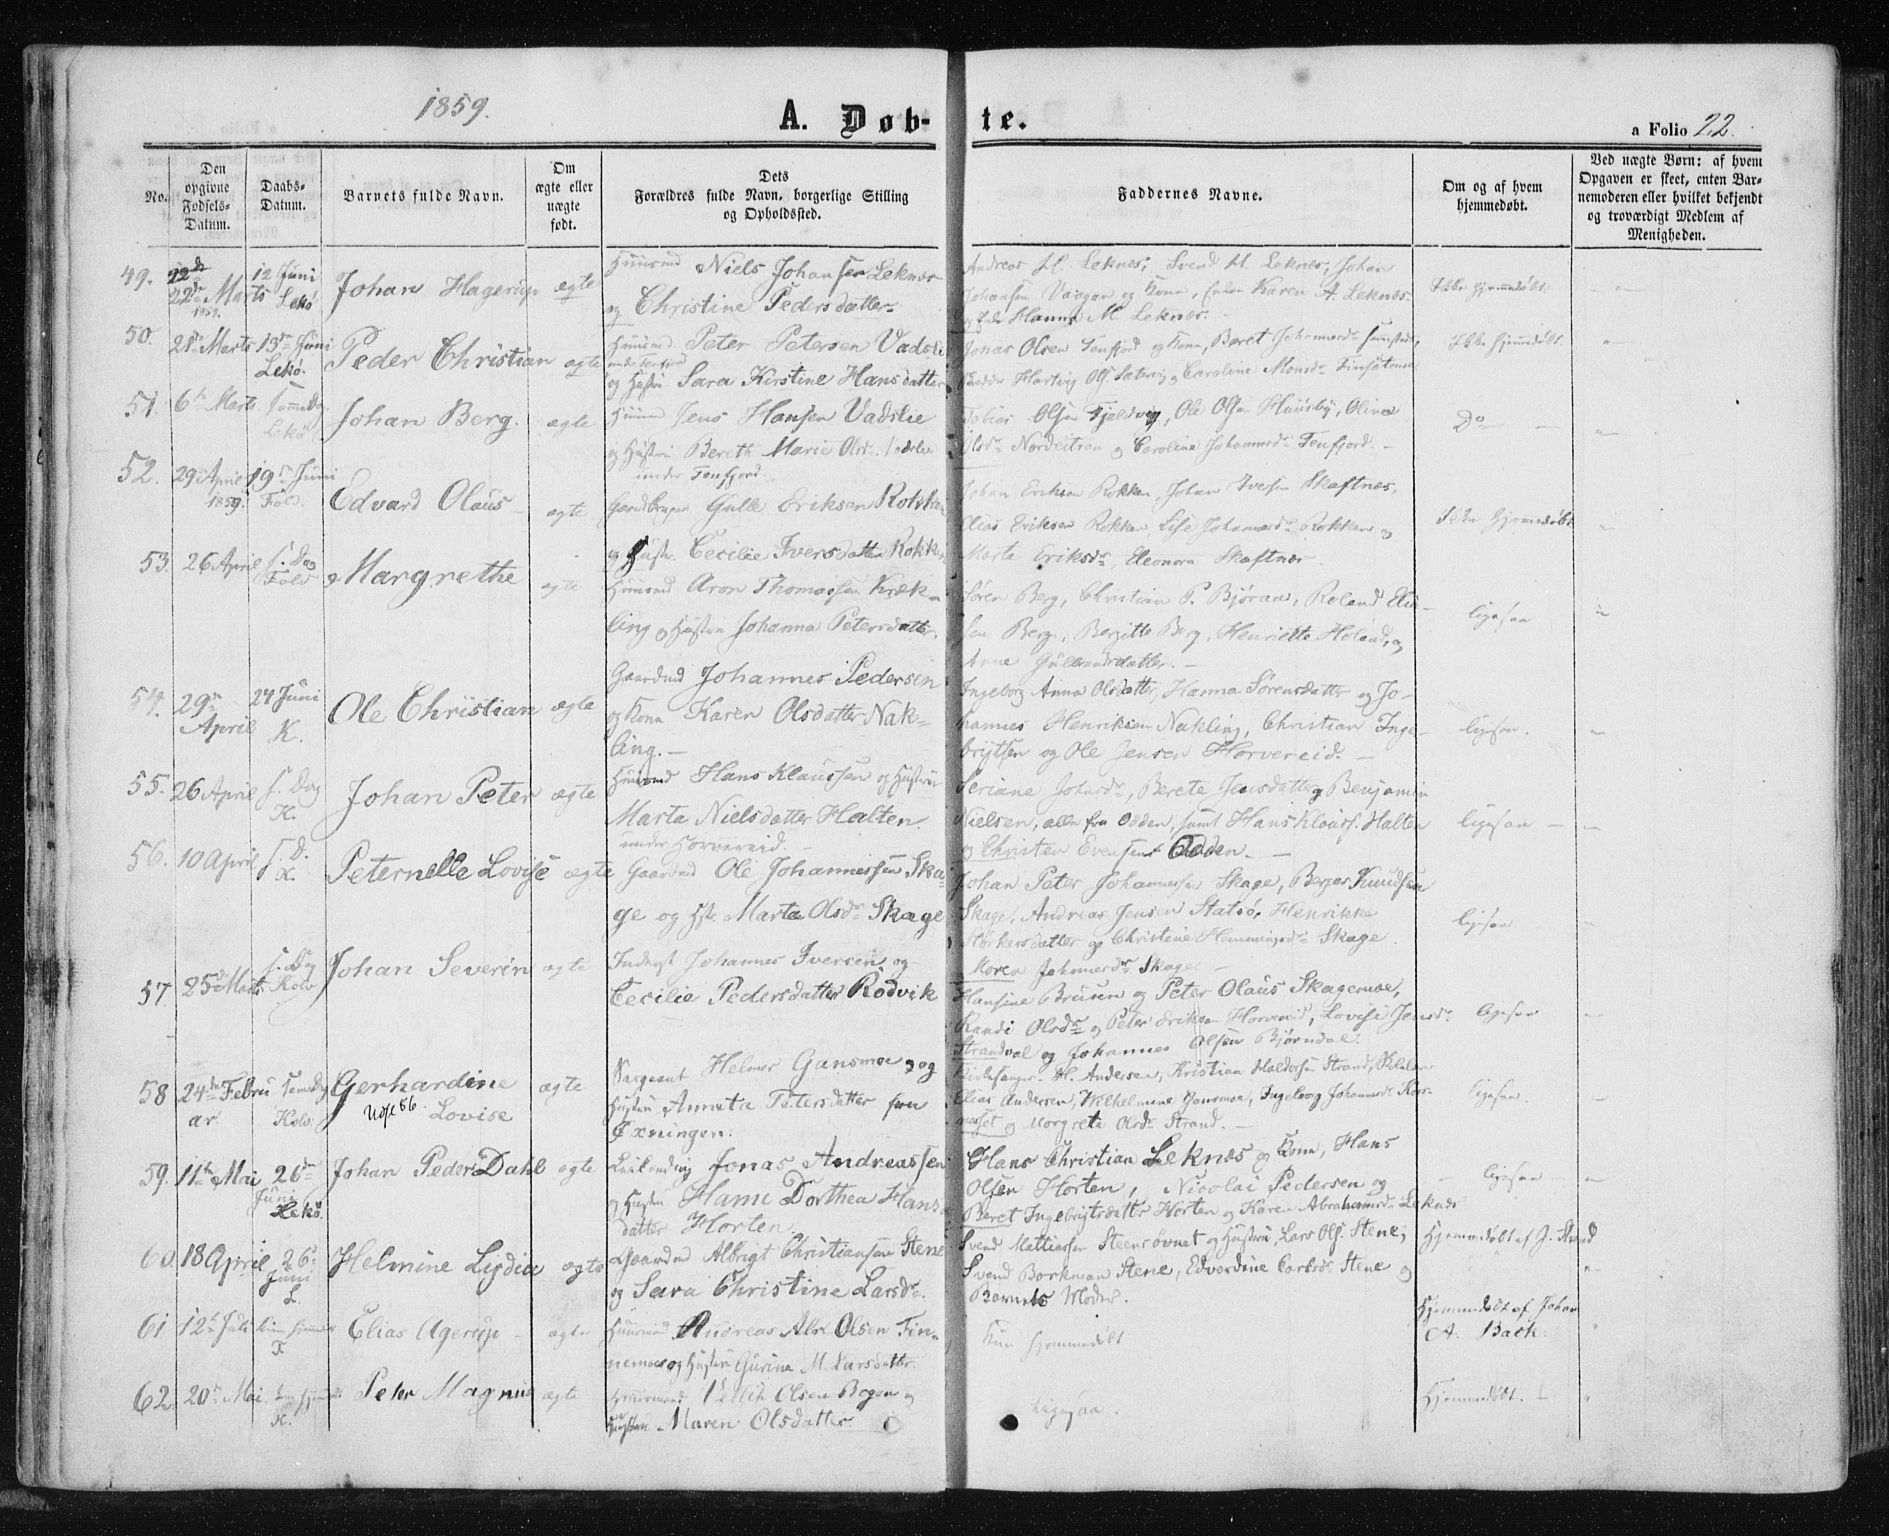 1859.
A. Døb-
te.
a Folio 22.
No.
Den
opgivne
Fødsels-
Datum.
Daabs-
Datum.
Barnets fulde Navn.
Om
ægte eller
uægte
født.
Dets
Forældres fulde Navn, borgerlige Stilling
og Opholdssted.
Faddernes Navne.
Om og af hvem
hjemmedøbt.
Ved uægte Børn: af hvem
Opgaven er skeet, enten Bar-
nemoderen eller hvilket bekjendt
og troværdigt Medlem af
Menigheden.
49. 22de Marts 1859. 12 Juni Lekø Johan Hagerup ægte
Huusmd Niels Johansen Leknæs
og Christine Pedersdatter
Andreas H. Leknes; Svend H. Leknes, Johan
Johansen Vaagan og Kone, Enken Karen A. Leknæs.
Hanna M. Leknes.
Ikke hjemmedøbt
50. 21de Marts 13de Juni Lekø. Peder Christian ægte
Huusmd Peter Petersen Vadslie
under Tenfjord
og Hustru Sara Kirstine Hansdatter
Jonas Olsen Tenfjord og Kone, Beret
Hartvig Ols. Sætervig, Caroline Monsdr
Ikke hjemmedøbt.
51. 6te Marts samme Dag Lekø Johan Berg. ægte
Huusmd Jens Hansen Vadslie
og Hustru Bereth Marie Olsdr. Vadslie
under Tenfjord.
Tobias Olsen Fjeldvig, Ole Olsen Huusby, Olina
Olsdr Nordeitran og Carolina Johannesdr Tenfjord.
Do
52. 29 April 1859. 19de Juni Fold. Edvard Olaus ægte
Gaardbruger Gulle Eriksen Rokkan
og Hustr. Cecilie Iversdatter Rokkan
Johan Eriksen Rokken, Johan Ivesen Skaftnes,
Elias Eriksen Rokken, Lise Johannesdr Rokken og
Marta Eriksdr, Eleonora Skaftnes
Ikke hjemmedøbt
53. 26 April s. Dag Fold Margrethe ægte
Huusmd Aron Thomassen Kræk-
ling og Hustru Johanna Petersdatter.
Søren Berg, Christian P. Bjøraa, Roland Elia-
sen Berg, Bergitte Berg, Henriette Høland, og
Anne Gulbrandsdatter.
ligesaa
54. 29de April 24 Juni K. Ole Christian ægte
Gaardmd Johannes Pedersen
og Kone Karen Olsdatter Nak-
ling.
Ingeborg Anna Olsdatter, Hanna Sørensdatter og Jo-
hannes Henriksen Nakling, Christian Inge-
brigtsen og Ole Jensen Horvereid.
ligesaa.
55. 26 April s. Dag K. Johan Peter ægte
Huusmd Hans Klaussen og Hustru
Marta Nielsdatter Halten.
under Horvereid.
Seriane Johnsdr, Berete Jensdatter, Benjamin
Nielsen, alle fra Odden, samt Hans Klauss. Halten
og Christen Evensen Odden.
ligesaa
56. 10 April s. D. K. Peternelle Lovise ægte
Gaardmd Ole Johannessen Ska-
ge og Hstr Marta Olsdr Skage
Johan Peter Johannessen Skage, Berger Knudsen
Skage, Andreas Jensen Statsø, Henrikke
Størkersdatter og Christine Hemmingsdr Skage.
Maren Johnsdr Skage
ligesaa
57. 25de Marts s. Dag Kolv Johan Severin ægte
Inderst Johannes Iversen og
Cecilie Pedersdatter Rødvik
Hansine Bruun og Peter Olaus Skagemoe,
Randi Olsdr og Peter Eriksen Horvereid, Lovise Jensdr
Strandval og Johannes Olsen Bjørndal.
ligesaa
58 24de Febru ar samme Dag Kolv. Gerhardine
Lovise ægte
Udst 66.
Sergeant Helmer Gansmoe, og
Hustru Anneta Petersdatter fra
Øxningen.
Kirkesanger H. Andersen, Kristian Haldorsen Strand,
Elias Andersen, Wilhelmine Gansmoe, Ingeborg Johannesdr
og Margreta Olsdr Strand.
ligesaa.
59. 11te Mai 26de Juni Lekø. Johan Peder Dahl ægte
Leilænding Jonas Andreassen
og Hustru Hanne Dorthea Hans-
datter Horten
Hans Christian Leknæs og Kone, Hans
Olsen Horten, Nicolai Pedersen og
Beret Ingebrigtsdatter Horten og Karen Abrahamsdr Leknæs
ligesaa
60. 18 April 26. Juni L. Helmine Lydia ægte
Gaardmd Albrigt Christiansen Stene
og Sara Christine Larsdr.
Svend Mattiassen Steensovnet og Hustru, Lars Ols. Stene,
Svend Borkman Stene, Edvardine Carlsdr Stene og
Barnets Moder.
Hjemmedøbt af J. Strand
61 12te Juli kun hjemmed. F. Elias Agerup ægte
Huusmd Andreas Abr. Olsen Fin-
nemoe og Hustru Gurine M. Larsdatter.
Kun hjemmedøbt
Hjemmedøbt af Johan
A. Back.
62. 20de Mai. kun hjemmedt K. Peter Magnus ægte
Huusmand Olsen Bogen og
Hustru Maren Olsdatter
Ligesaa.
Hjemmedøbt.